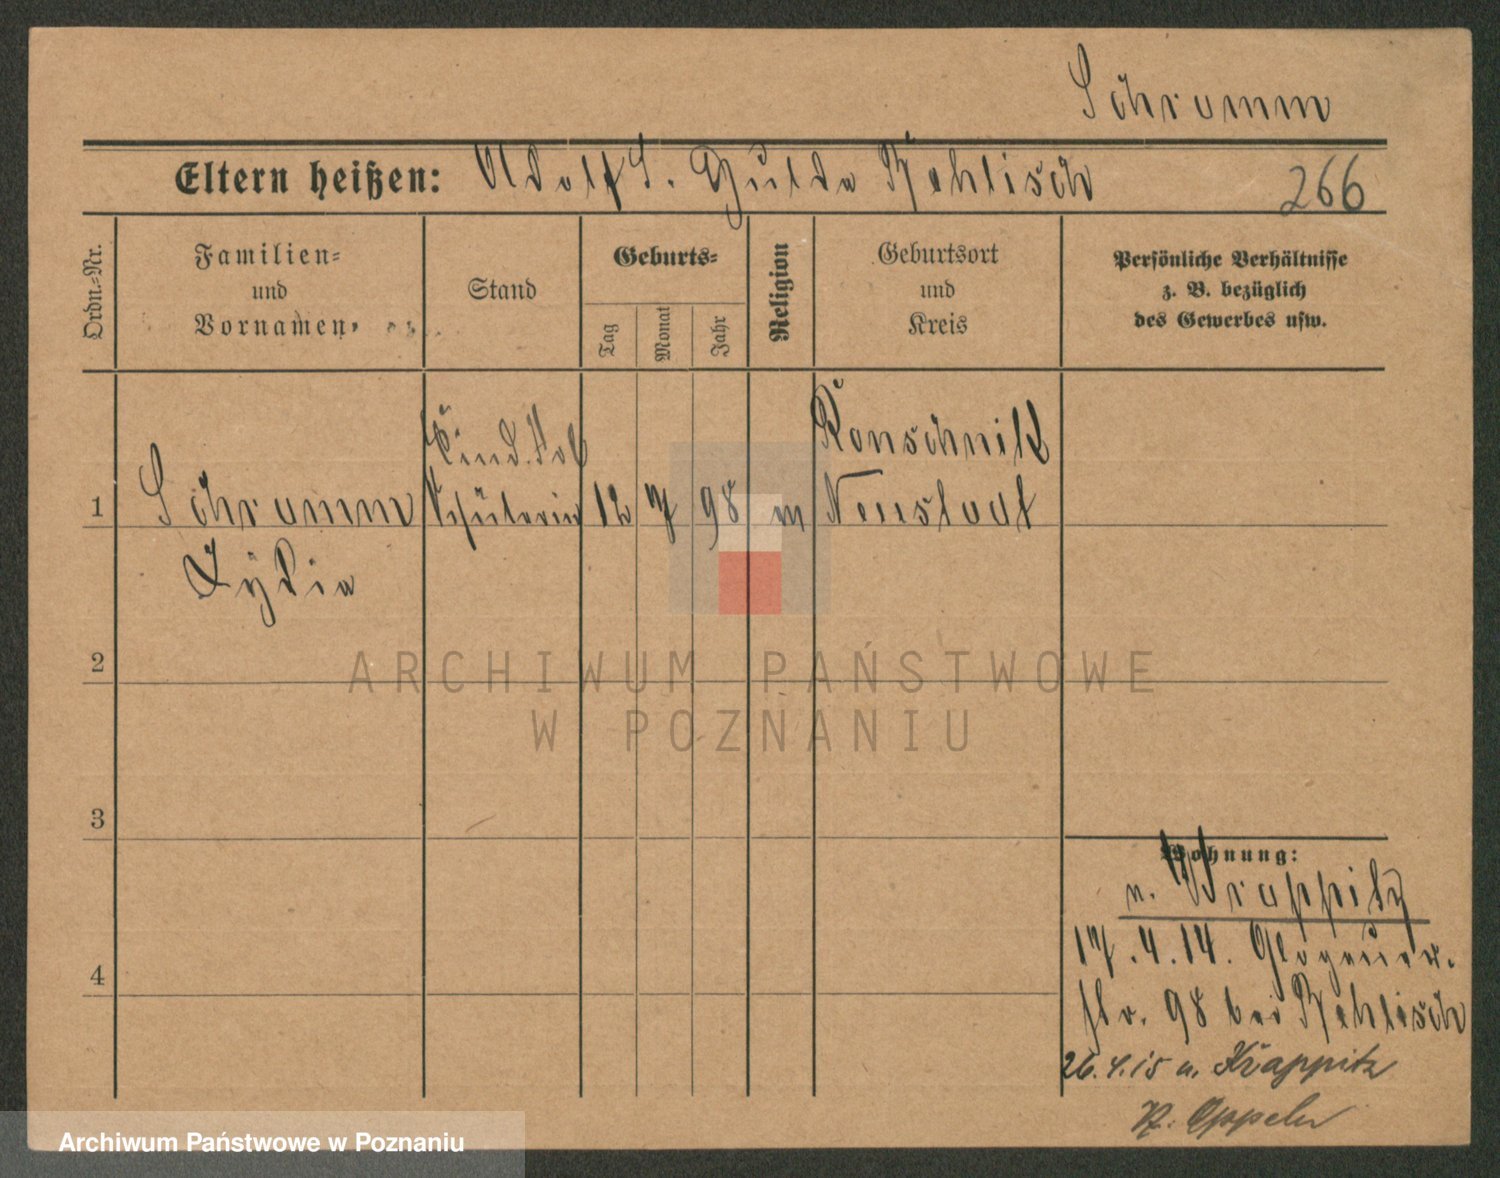 Schramm
Eltern heißen: Adolf S. Hulda Rehlisch
266
Ordn.-Nr.
Familien-
und
Vornamen
Stand
Geburts-
Tag
Monat
Jahr
Religion
Geburtsort
und
Kreis
Persönliche Verhältnisse
z. B. bezüglich
des Gewerbes usw.
1
Schramm
Lydia
Schülerin
12 7 98 m
Ronschnitz
Neustadt
2
3
4
Wohnung:
n. Krappitz
17.4.14. Glogauer-
str. 98 bei Rehlisch
26.4.15 n. Krappitz
Kr. Oppeln
ARCHIWUM PAŃSTWOWE
W POZNANIU
Archiwum Państwowe w Poznaniu